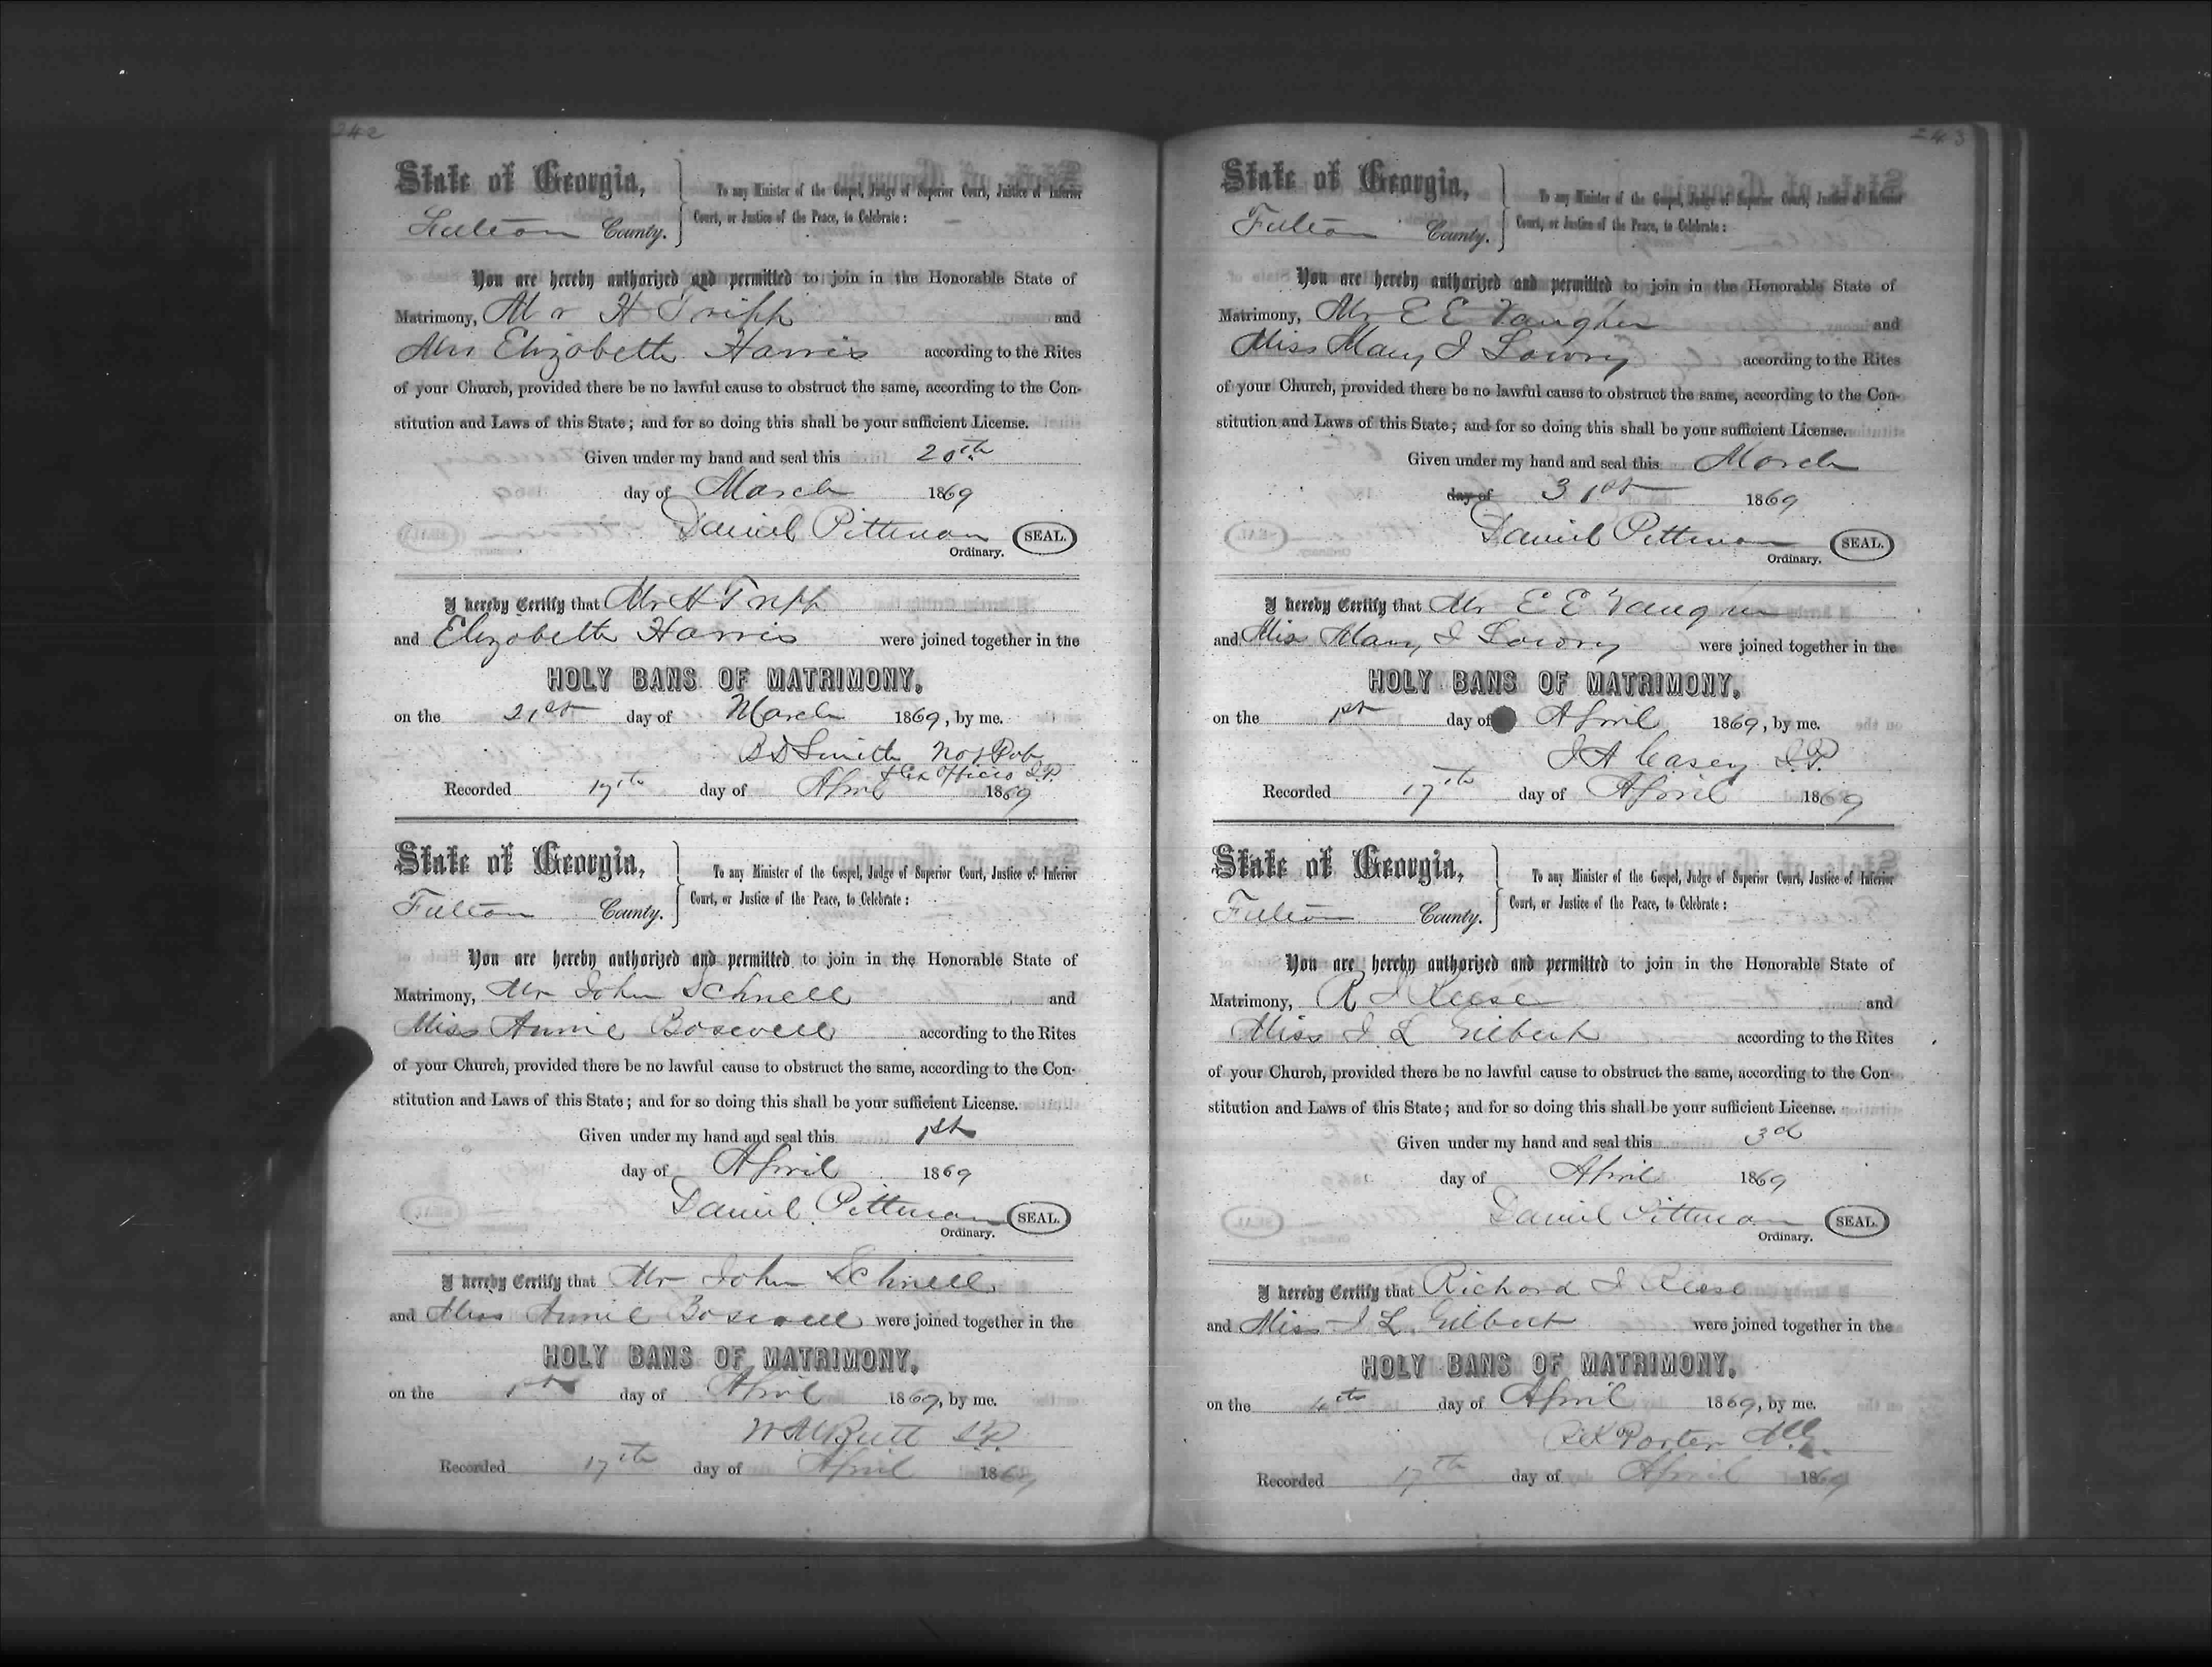 242
State of Georgia,
Fulton County.
To any Minister of the Gospel, Judge of Superior Court, Justice of Inferior
Court, or Justice of the Peace, to Celebrate:
You are hereby authorized and permitted to join in the Honorable State of
Matrimony, Mr H Tripp and
Mrs Elizabeth Harris according to the Rites
of your Church, provided there be no lawful cause to obstruct the same, according to the Con-
stitution and Laws of this State; and for so doing this shall be your sufficient License.
Given under my hand and seal this 20th
day of March 1869
Daniel Pittman SEAL.
Ordinary.
I hereby Certify that Mr H Tripp
and Elizabeth Harris were joined together in the
HOLY BANS OF MATRIMONY,
on the 21st day of March 1869, by me.
B D Smith Not Pub
& Ex Officio J.P.
Recorded 17th day of April 1869
State of Georgia,
Fulton County.
To any Minister of the Gospel, Judge of Superior Court, Justice of Inferior
Court, or Justice of the Peace, to Celebrate:
You are hereby authorized and permitted to join in the Honorable State of
Matrimony, Mr John Schnell and
Miss Annie Boswell according to the Rites
of your Church, provided there be no lawful cause to obstruct the same, according to the Con-
stitution and Laws of this State; and for so doing this shall be your sufficient License.
Given under my hand and seal this 1st
day of April 1869
Daniel Pittman SEAL.
Ordinary.
I hereby Certify that Mr John Schnell
and Miss Annie Boswell were joined together in the
HOLY BANS OF MATRIMONY,
on the 1st day of April 1869, by me.
Butt J.P.
Recorded 17th day of April 1869
243
State of Georgia,
Fulton County.
To any Minister of the Gospel, Judge of Superior Court, Justice of Inferior
Court, or Justice of the Peace, to Celebrate:
You are hereby authorized and permitted to join in the Honorable State of
Matrimony, Mr E E Vaughn and
Miss Mary J Lowry according to the Rites
of your Church, provided there be no lawful cause to obstruct the same, according to the Con-
stitution and Laws of this State; and for so doing this shall be your sufficient License.
Given under my hand and seal this March
day of 31st 1869
Daniel Pittman SEAL.
Ordinary.
I hereby Certify that Mr E E Vaughn
and Miss Mary J Lowry were joined together in the
HOLY BANS OF MATRIMONY,
on the 1st day of April 1869, by me.
J A Casey J.P.
Recorded 17th day of April 1869
State of Georgia,
Fulton County.
To any Minister of the Gospel, Judge of Superior Court, Justice of Inferior
Court, or Justice of the Peace, to Celebrate:
You are hereby authorized and permitted to join in the Honorable State of
Matrimony, R J Reese and
Miss J L Gilbert according to the Rites
of your Church, provided there be no lawful cause to obstruct the same, according to the Con-
stitution and Laws of this State; and for so doing this shall be your sufficient License.
Given under my hand and seal this 3d
day of April 1869
Daniel Pittman SEAL.
Ordinary.
I hereby Certify that Richard J Reese
and Miss J L Gilbert were joined together in the
HOLY BANS OF MATRIMONY,
on the 4th day of April 1869, by me.
R K Porter
Recorded 17th day of April 1869